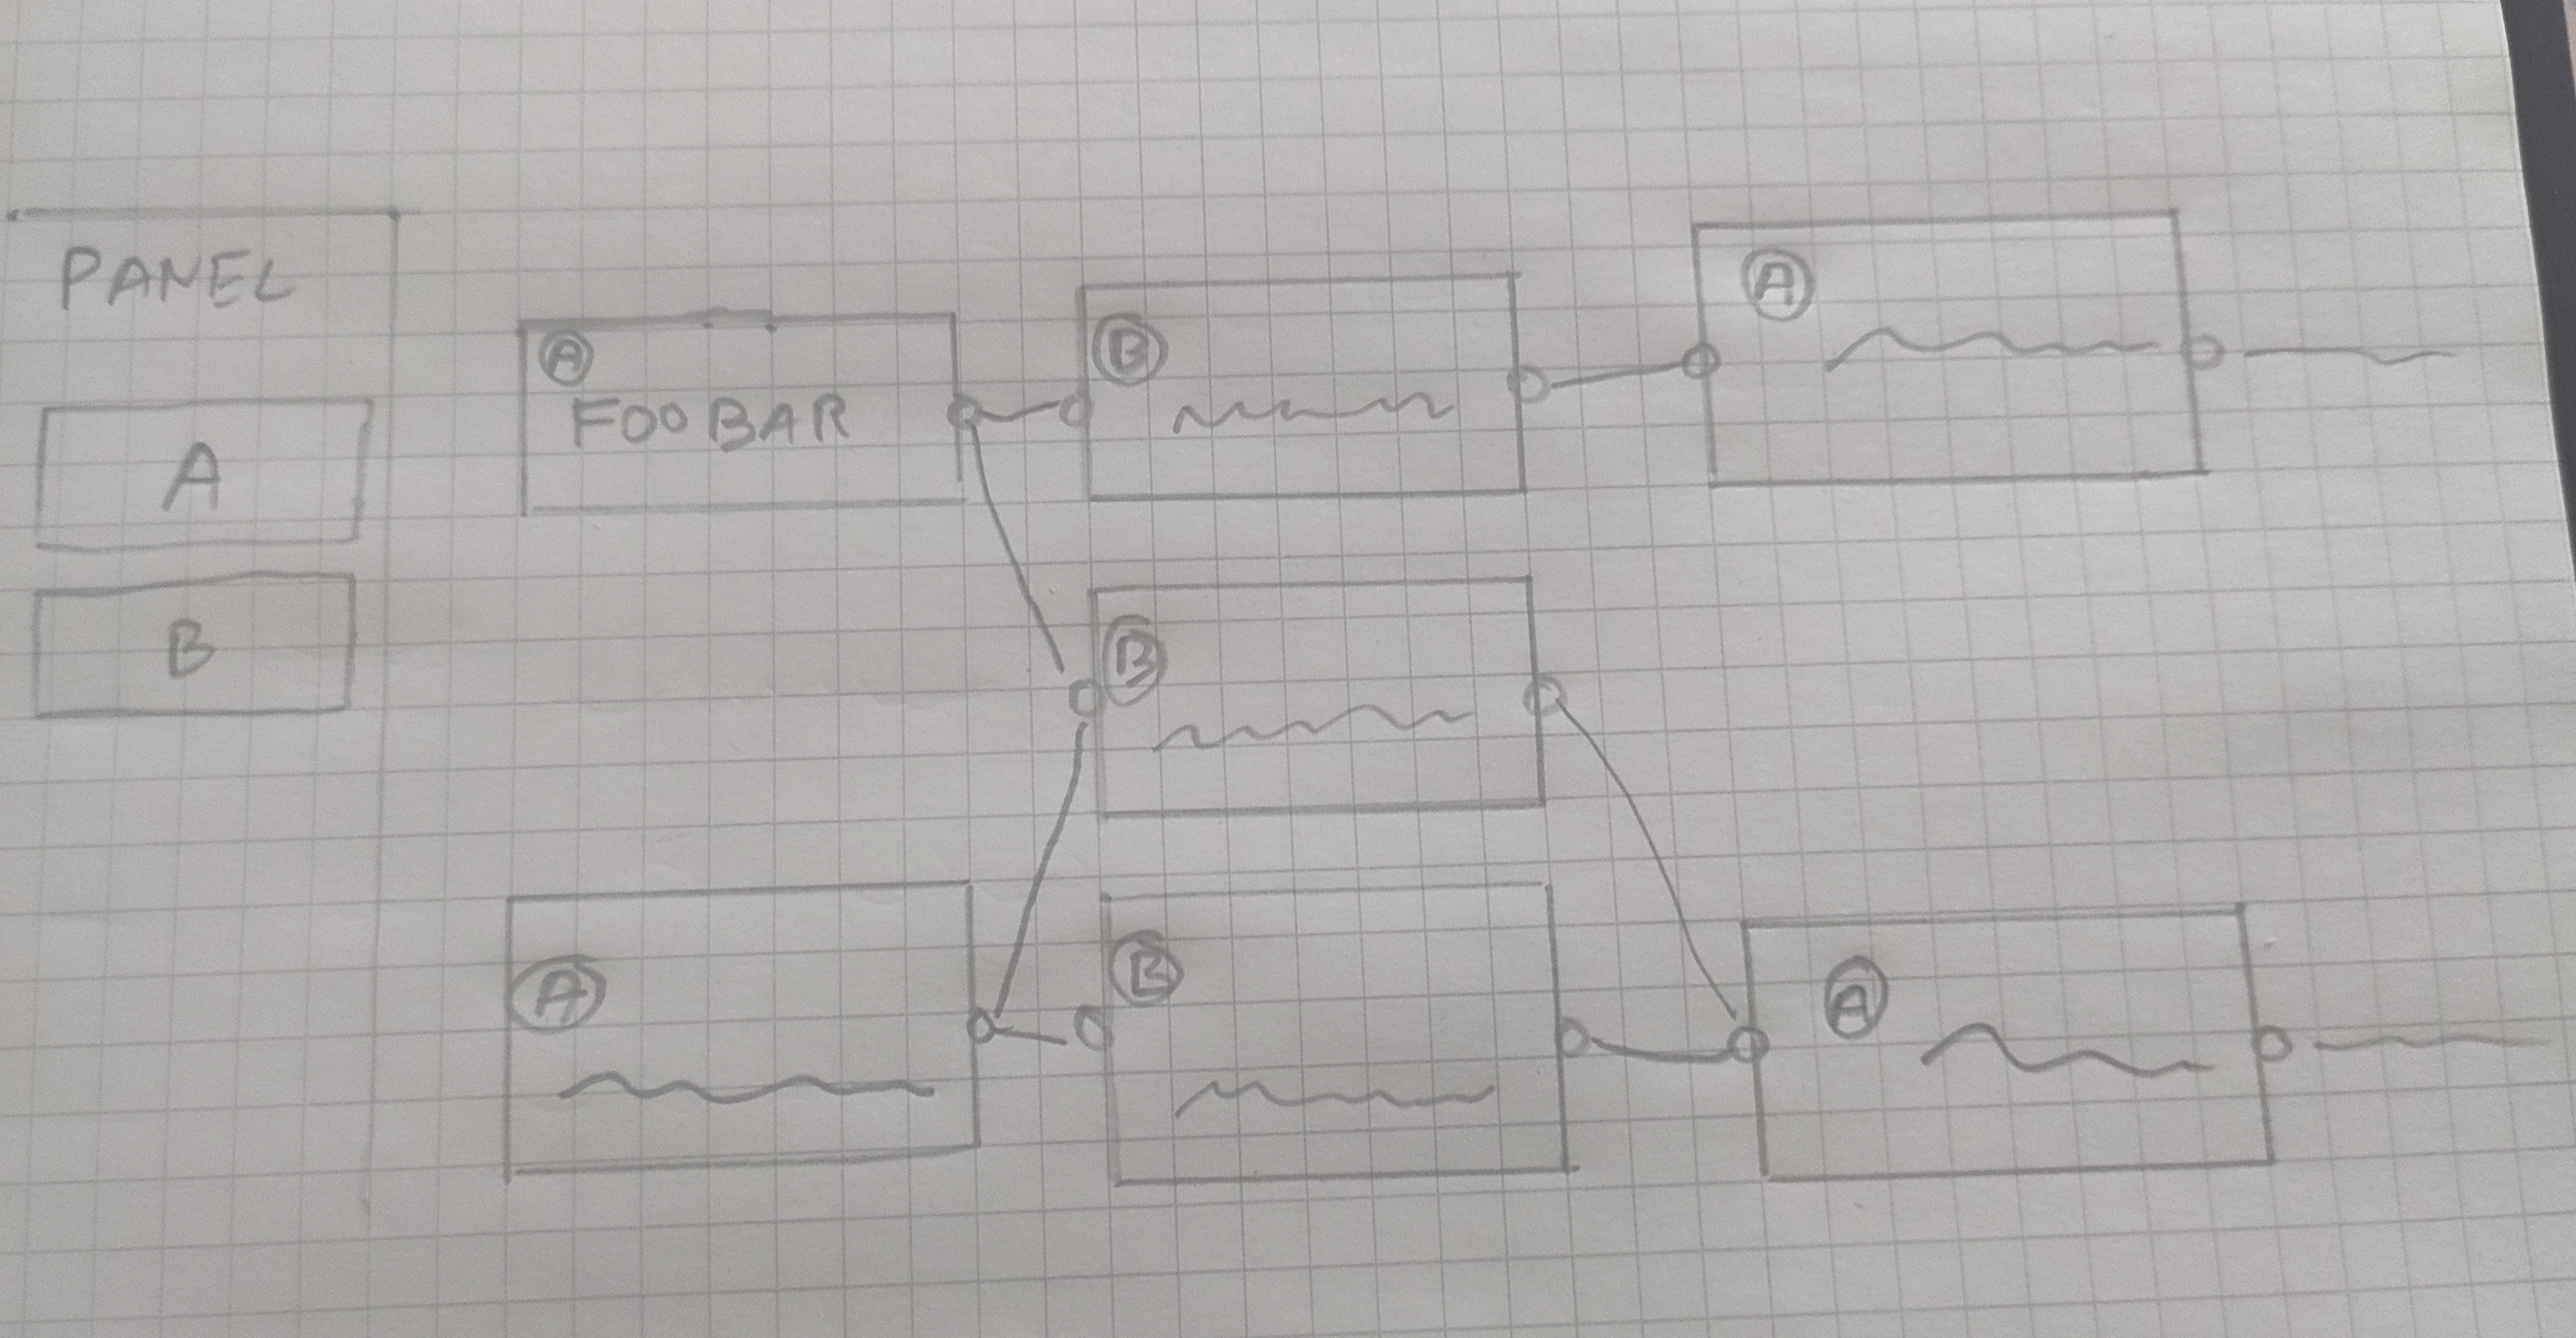 PANEL
A
B
A
FOO BAR
B
A
B
A
B
A